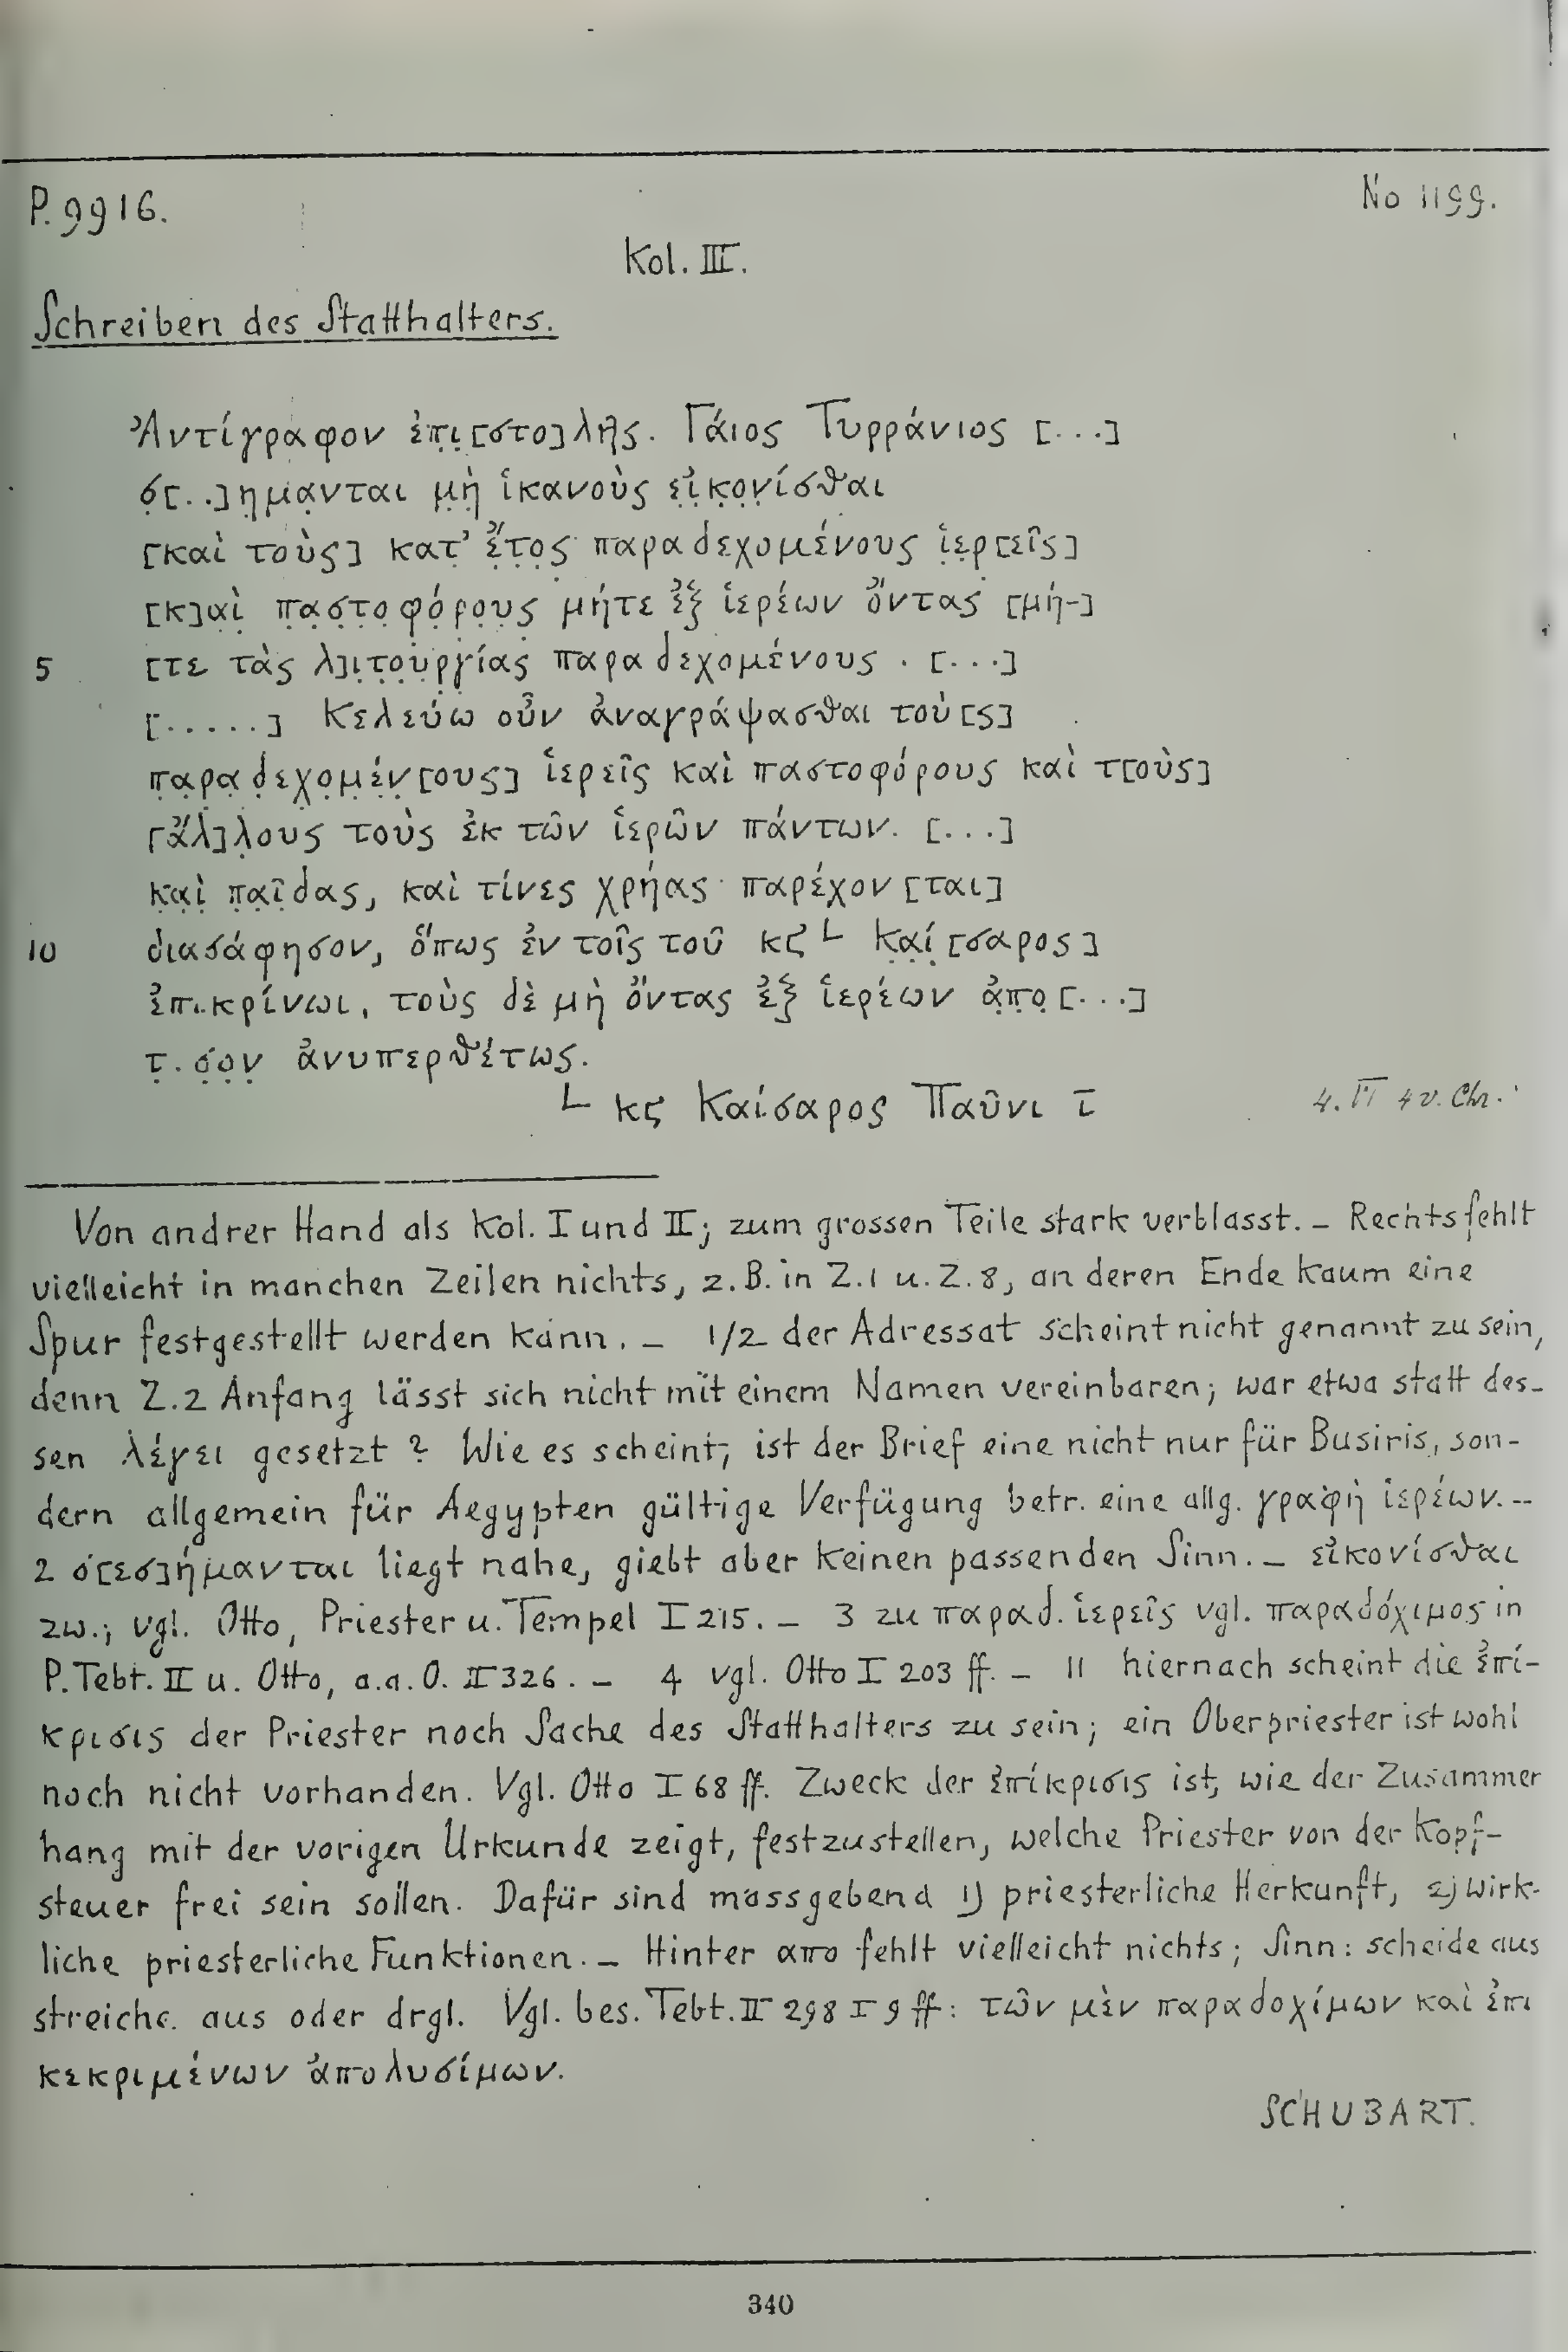 P. 9916.
No 1199.
Kol. III.
Schreiben des Statthalters.
Ἀντίγραφον ἐπ̣ι̣[στο]λῆς. Γάιος Τυρράνιος [...]
σ̣[..]ημα̣νται μ̣ὴ̣ ἱκανοὺς ε̣ἰ̣κ̣ο̣ν̣ίσθαι
[καὶ τοὺς] κατ̣’ ἔ̣τ̣ο̣ς̣ παραδεχομένους ἱ̣ε̣ρ̣[εῖς]
[κ]α̣ὶ̣ π̣α̣σ̣τ̣ο̣φ̣ό̣ρ̣ο̣υ̣ς̣ μήτε ἐξ ἱερέων ὄντας [μή-]
5 [τε τὰς λ]ι̣τ̣ο̣υ̣ρ̣γ̣ίας παραδεχομένους . [...]
[.....] Κελεύω οὖν ἀναγράψασθαι τοὺ[ς]
π̣α̣ρ̣α̣δ̣ε̣χ̣ο̣μ̣έ̣ν̣[ους] ἱερεῖς καὶ παστοφόρους καὶ τ[οὺς]
[ἄλ]λ̣ους τοὺς ἐκ τῶν ἱερῶν πάντων. [...]
κ̣α̣ὶ̣ π̣α̣ῖ̣δας, καὶ τίνες χρήας παρέχον[ται]
10 διασάφησον, ὅπως ἐν τοῖς τοῦ κζ L Κ̣α̣ί̣[σαρος]
ἐπικρίνωι, τοὺς δὲ μὴ ὄντας ἐξ ἱερέων ἀ̣π̣ο̣[...]
τ̣.σ̣ο̣ν̣ ἀνυπερθέτως.
L κς Καίσαρος Παῦνι ῑ 4. VI 4 v. Chr.
Von andrer Hand als Kol. I und II; zum grossen Teile stark verblasst. – Rechts fehlt
vielleicht in manchen Zeilen nichts, z.B. in Z. 1 u. Z. 8, an deren Ende kaum eine
Spur festgestellt werden kann. – 1/2 der Adressat scheint nicht genannt zu sein,
denn Z. 2 Anfang lässt sich nicht mit einem Namen vereinbaren; war etwa statt des-
sen λέγει gesetzt? Wie es scheint, ist der Brief eine nicht nur für Busiris, son-
dern allgemein für Aegypten gültige Verfügung betr. eine allg. γραφὴ ἱερέων. –
2 σ[εσ]ήμανται liegt nahe, giebt aber keinen passenden Sinn. – εἰκονίσθαι
zw.; vgl. Otto, Priester u. Tempel I 215. – 3 zu παραδ. ἱερεῖς vgl. παραδόχιμος in
P. Tebt. II u. Otto, a.a.O. II 326. – 4 vgl. Otto I 203 ff. – 11 hiernach scheint die ἐπί-
κρισις der Priester noch Sache des Statthalters zu sein; ein Oberpriester ist wohl
noch nicht vorhanden. Vgl. Otto I 68 ff. Zweck der ἐπίκρισις ist, wie der Zusammen
hang mit der vorigen Urkunde zeigt, festzustellen, welche Priester von der Kopf-
steuer frei sein sollen. Dafür sind massgebend 1) priesterliche Herkunft, 2) wirk-
liche priesterliche Funktionen. – Hinter απο fehlt vielleicht nichts; Sinn: scheide aus
streiche aus oder drgl. Vgl. bes. Tebt. II 298 I 9 ff: τῶν μὲν παραδοχίμων καὶ ἐπι
κεκριμένων ἀπολυσίμων.
SCHUBART.
340